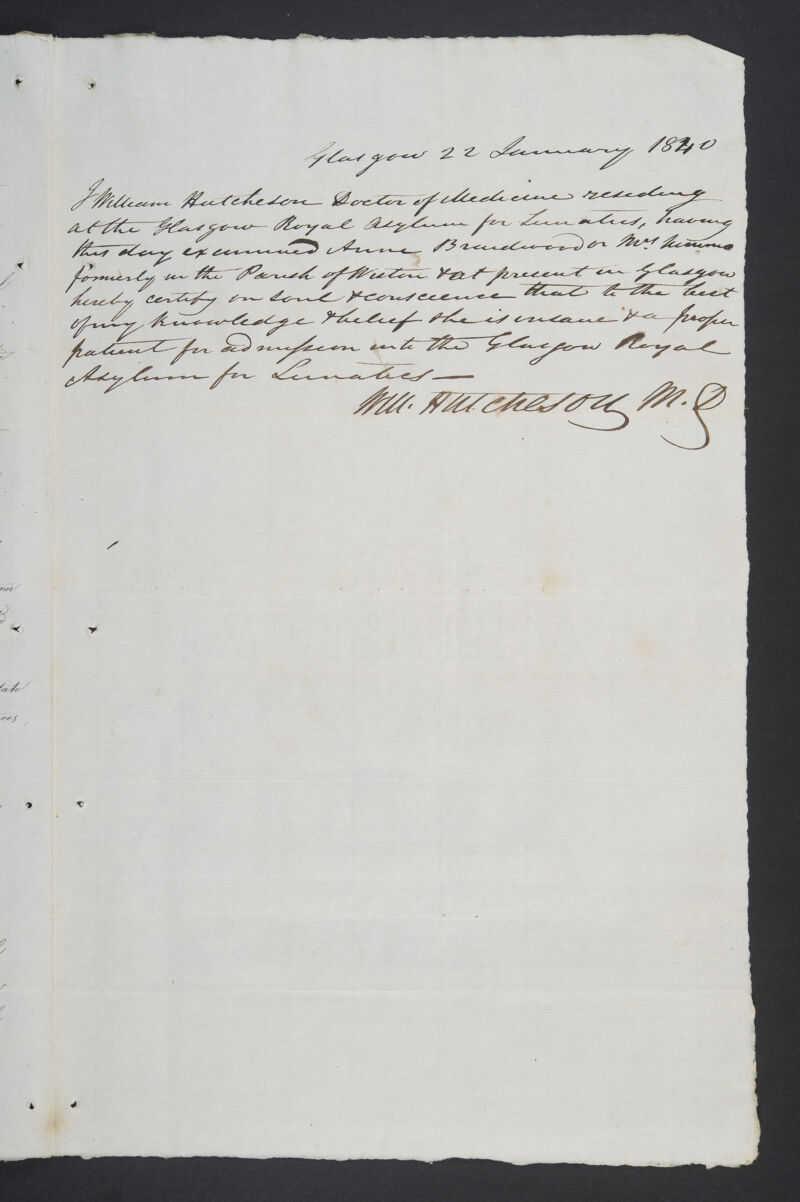 Glasgow 22 January 1840
I William Hutcheson Doctor of Medicine residing
at the Glasgow Royal Asylum for Lunatics, having
this day examined Anne Braidwood or Mrs
formerly in the Parish of Wiston & at present in Glasgow
hereby certify on soul & conscience that to the best
of my knowledge & belief she is insane & a proper
patient for admission into the Glasgow Royal
Asylum for Lunatics —
Will. Hutcheson M.D